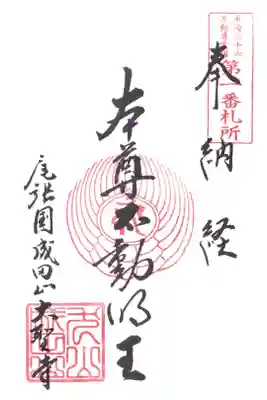 第一番札所
奉納経
本尊不動明王
尾張国成田山大聖寺